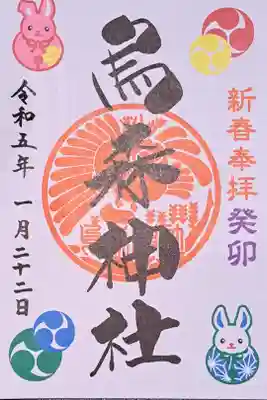 新春奉拝 癸卯
烏森神社
令和五年 一月二十二日